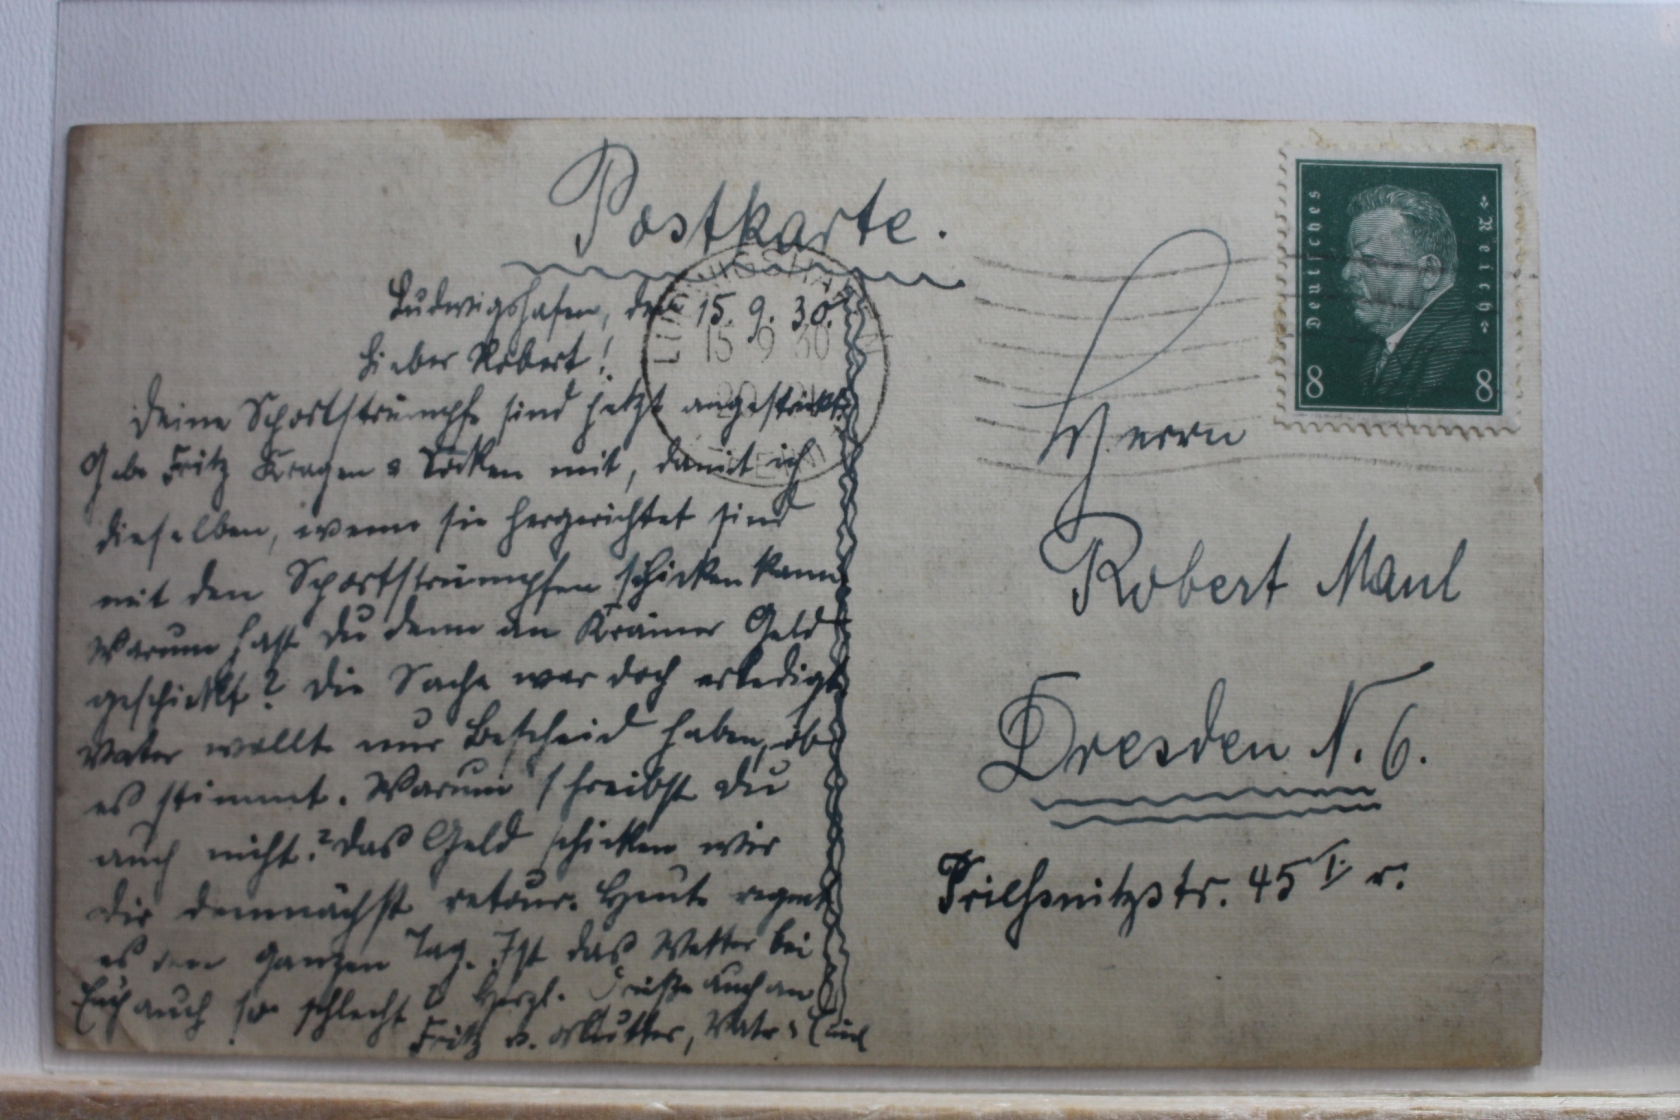 Postkarte.
Ludwigshafen, den 15. 9. 30.
Lieber Robert!
Deine Sportstrümpfe sind jetzt angestrickt.
Gebe Fritz Kragen & Socken mit, damit ich
dieselben, wenn sie hergerichtet sind
mit den Sportstrümpfen schicken kann.
Warum hast Du denn an Krämer Geld
geschickt? Die Sache war doch erledigt
Vater wollte nur Bescheid haben, ob
es stimmt. Warum schreibst Du
auch nicht? Das Geld schicken wir
Dir demnächst retour. Heute regnet
es den ganzen Tag. Ist das Wetter bei
Euch auch so schlecht? Herzl. Grüße auch an
Fritz v. Mutter, Vater &
LUDWIGSHAFEN
15 9 30
Deutsches
Reich
8
8
Herrn
Robert Maul
Dresden N. 6.
45 I. r.